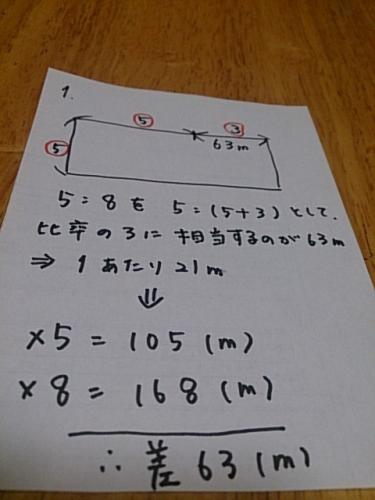 1.
⑤ ③
⑤ 63m
5:8を 5:(5+3)として.
比率の3に相当するのが63m
⇒ 1あたり21m
⇓
×5 = 105 (m)
×8 = 168 (m)
∴ 差 63 (m)